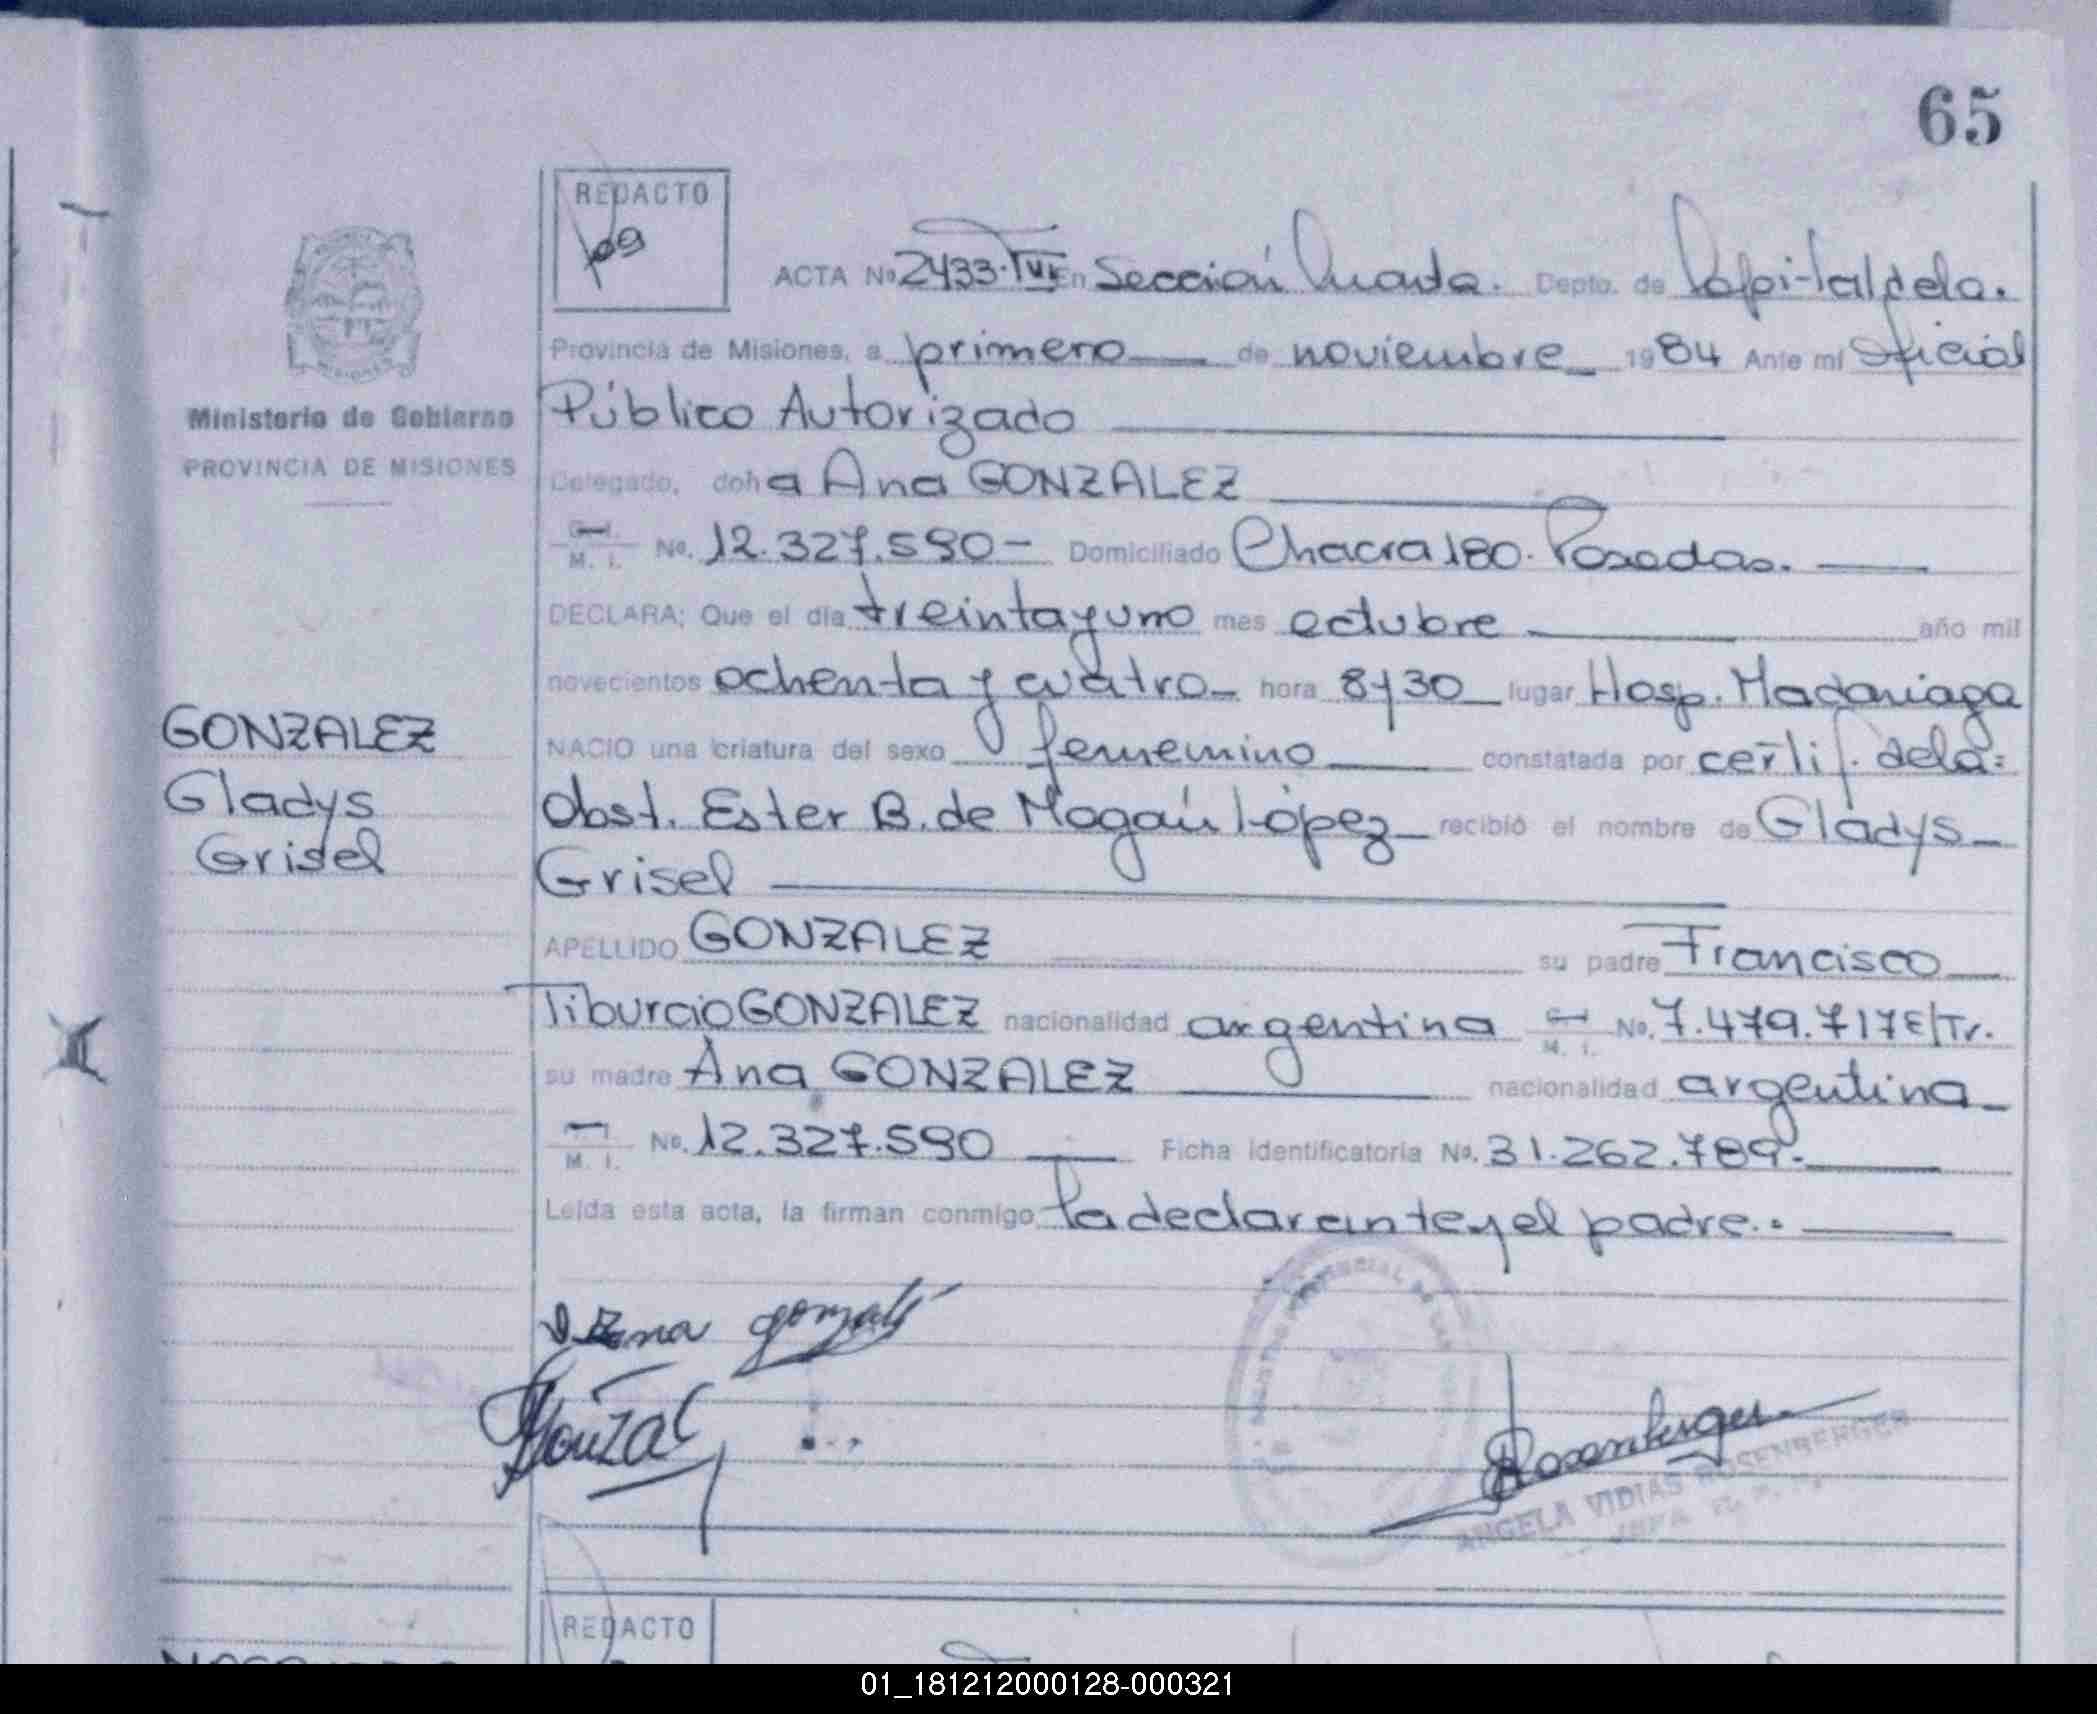 65
REDACTO
ACTA No 2433. TVI En Sección Cuarta. Depto. de Capital de la.
Provincia de Misiones, a primero de noviembre 1984 Ante mí Oficial
Ministerio de Gobierno
Público Autorizado
PROVINCIA DE MISIONES
Delegado, doña Ana GONZALEZ
M. I. No. 12.327.590- Domiciliado Chacra 180. Posadas.
DECLARA; Que el día treinta y uno mes octubre año mil
novecientos ochenta y cuatro hora 8y30 lugar Hosp. Madariaga
GONZALEZ
NACIO una criatura del sexo femenino constatada por certif. de la
Gladys
Obst. Ester B. de López recibió el nombre de Gladys
Grisel
Grisel
APELLIDO GONZALEZ su padre Francisco
Tiburcio GONZALEZ nacionalidad argentina M. I. No. 7.479.717 E/Tr.
su madre Ana GONZALEZ nacionalidad argentina
M. I. No. 12.327.590 Ficha identificatoria No. 31.262.789.
Leída esta acta, la firman conmigo la declarante y el padre.
Rosenberger
ANGELA VIDIAS ROSENBERGER
REDACTO
01_181212000128-000321